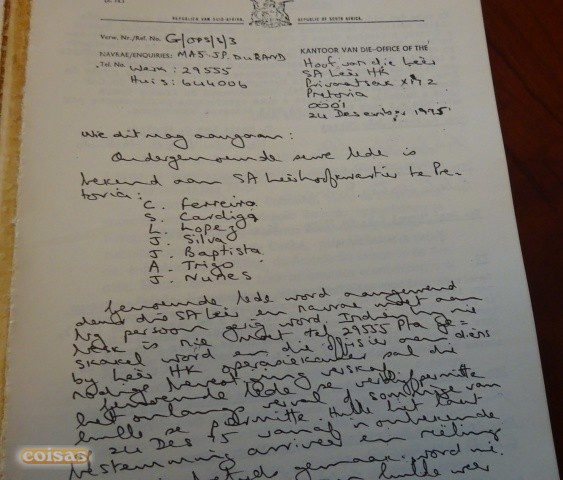 REPUBLIEK VAN SUID-AFRIKA. REPUBLIC OF SOUTH AFRICA.
Verw. Nr./Ref. No. G/OPS/2/3
NAVRAE/ENQUIRIES: MAJ JP. DURAND
Tel. No. Werk : 29555
Huis: 644006
KANTOOR VAN DIE-OFFICE OF THE
Hoof van die Leër
SA Leër HK
Privaatsak X172
Pretoria
0001
24 Desember 1975
Wie dit mag aangaan :
Ondergenoemde sewe lede is
bekend aan SA Leërhoofkwartier te Pre-
toria :
C. Ferreira
S. Cardiga
L. Lopez
J. Silva
J. Baptista
A. Trigo
J. Nunes
Genoemde lede word aangewend
deur die SA Leër en navrae moet aan
my persoon gerig word. Indien by nie
is nie moet tel 29555 Pta ge-
skakel word en die offisier aan diens
by Leër HK operasiekamer sal die
nodige bevestiging verskaf.
Genoemde lede se verblyfpermitte
het onlangs verval of sommige van
hulle se permitte. Hulle het laat
24 Des 75 vanaf onbekende
bestemming arriveer en reëling
gemaak word nie.
hulle weer
coisas